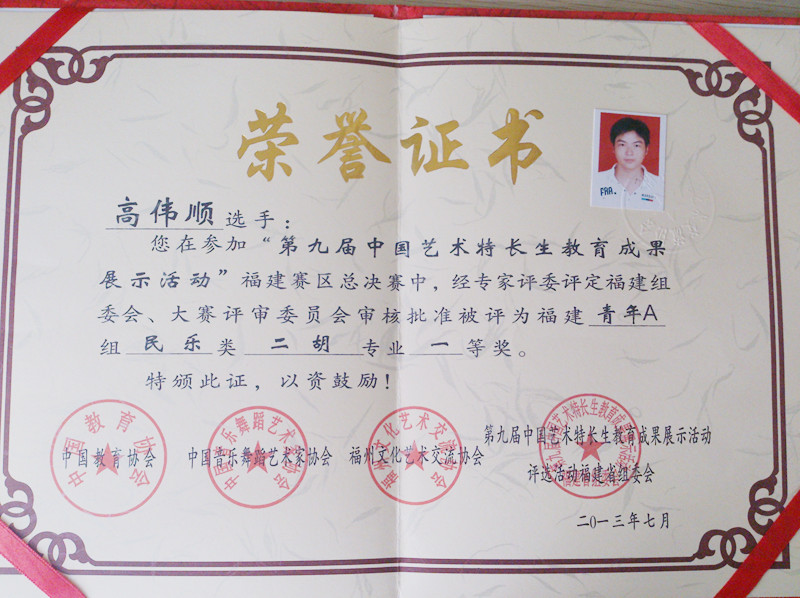 荣誉证书
FAA.
高伟顺选手：
您在参加“第九届中国艺术特长生教育成果
展示活动”福建赛区总决赛中，经专家评委评定福建组
委会、大赛评审委员会审核批准被评为福建青年A
组民乐类二胡专业一等奖。
特颁此证，以资鼓励！
中国教育协会
中国音乐舞蹈艺术家协会
福州文化艺术交流协会
第九届中国艺术特长生教育成果展示活动
评选活动福建省组委会
二〇一三年七月
中国教育协会